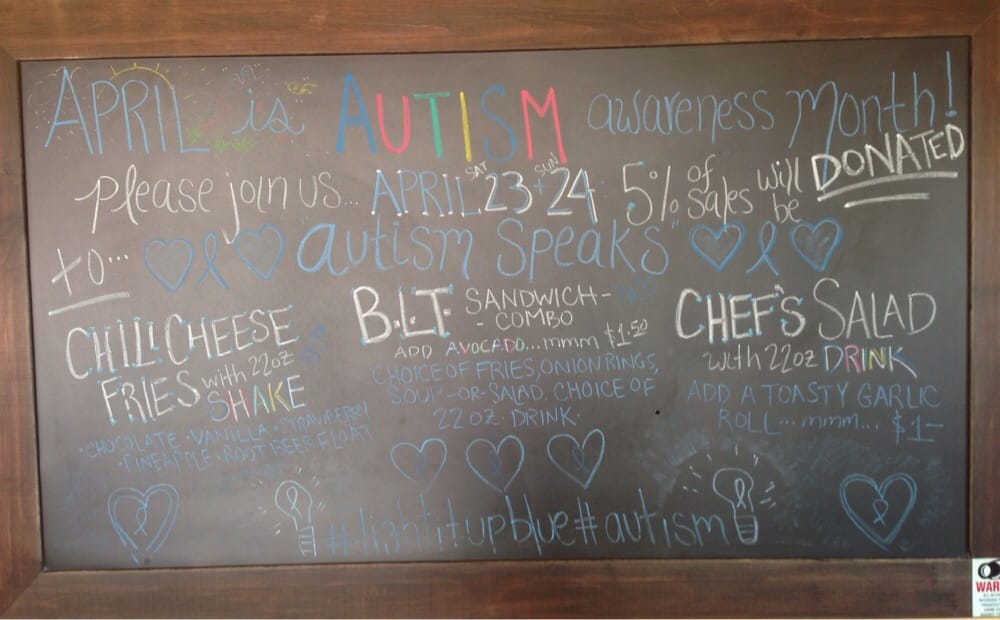 APRIL is AUTISM awareness Month!
please join us... APRIL SAT 23 + SUN 24 5% of Sales will be DONATED
to... "autism Speaks"
CHILI CHEESE FRIES with 22oz SHAKE
• CHOCOLATE • VANILLA • STRAWBERRY
• PINEAPPLE • ROOT BEER FLOAT
B.L.T. SANDWICH-
- COMBO
ADD AVOCADO...mmm $1.50
CHOICE OF FRIES, ONION RINGS,
SOUP-OR-SALAD. CHOICE OF
22 OZ. DRINK.
CHEF'S SALAD
with 22oz DRINK
ADD A TOASTY GARLIC
ROLL...mmm... $1-
#lightitupblue #autism
WAR